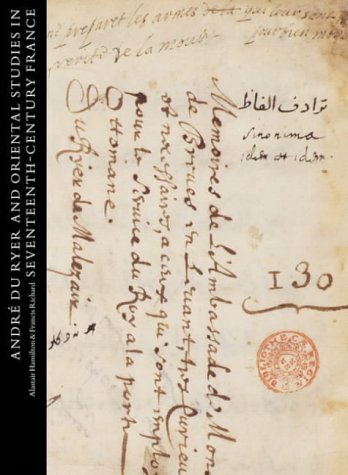 ANDRÉ DU RYER AND ORIENTAL STUDIES IN
SEVENTEENTH-CENTURY FRANCE
Alastair Hamilton & Francis Richard
les armes
verité de la
ترادف الفاظ
Sinonima
idem et idem
130
Memoires de l'Ambassade de Mons
de Breves en Levant, tres curieux
et necessaires, a ceux qui sont employ
pour le service du Roy a la porte
Ottomane.
Du Ryer de Malezair